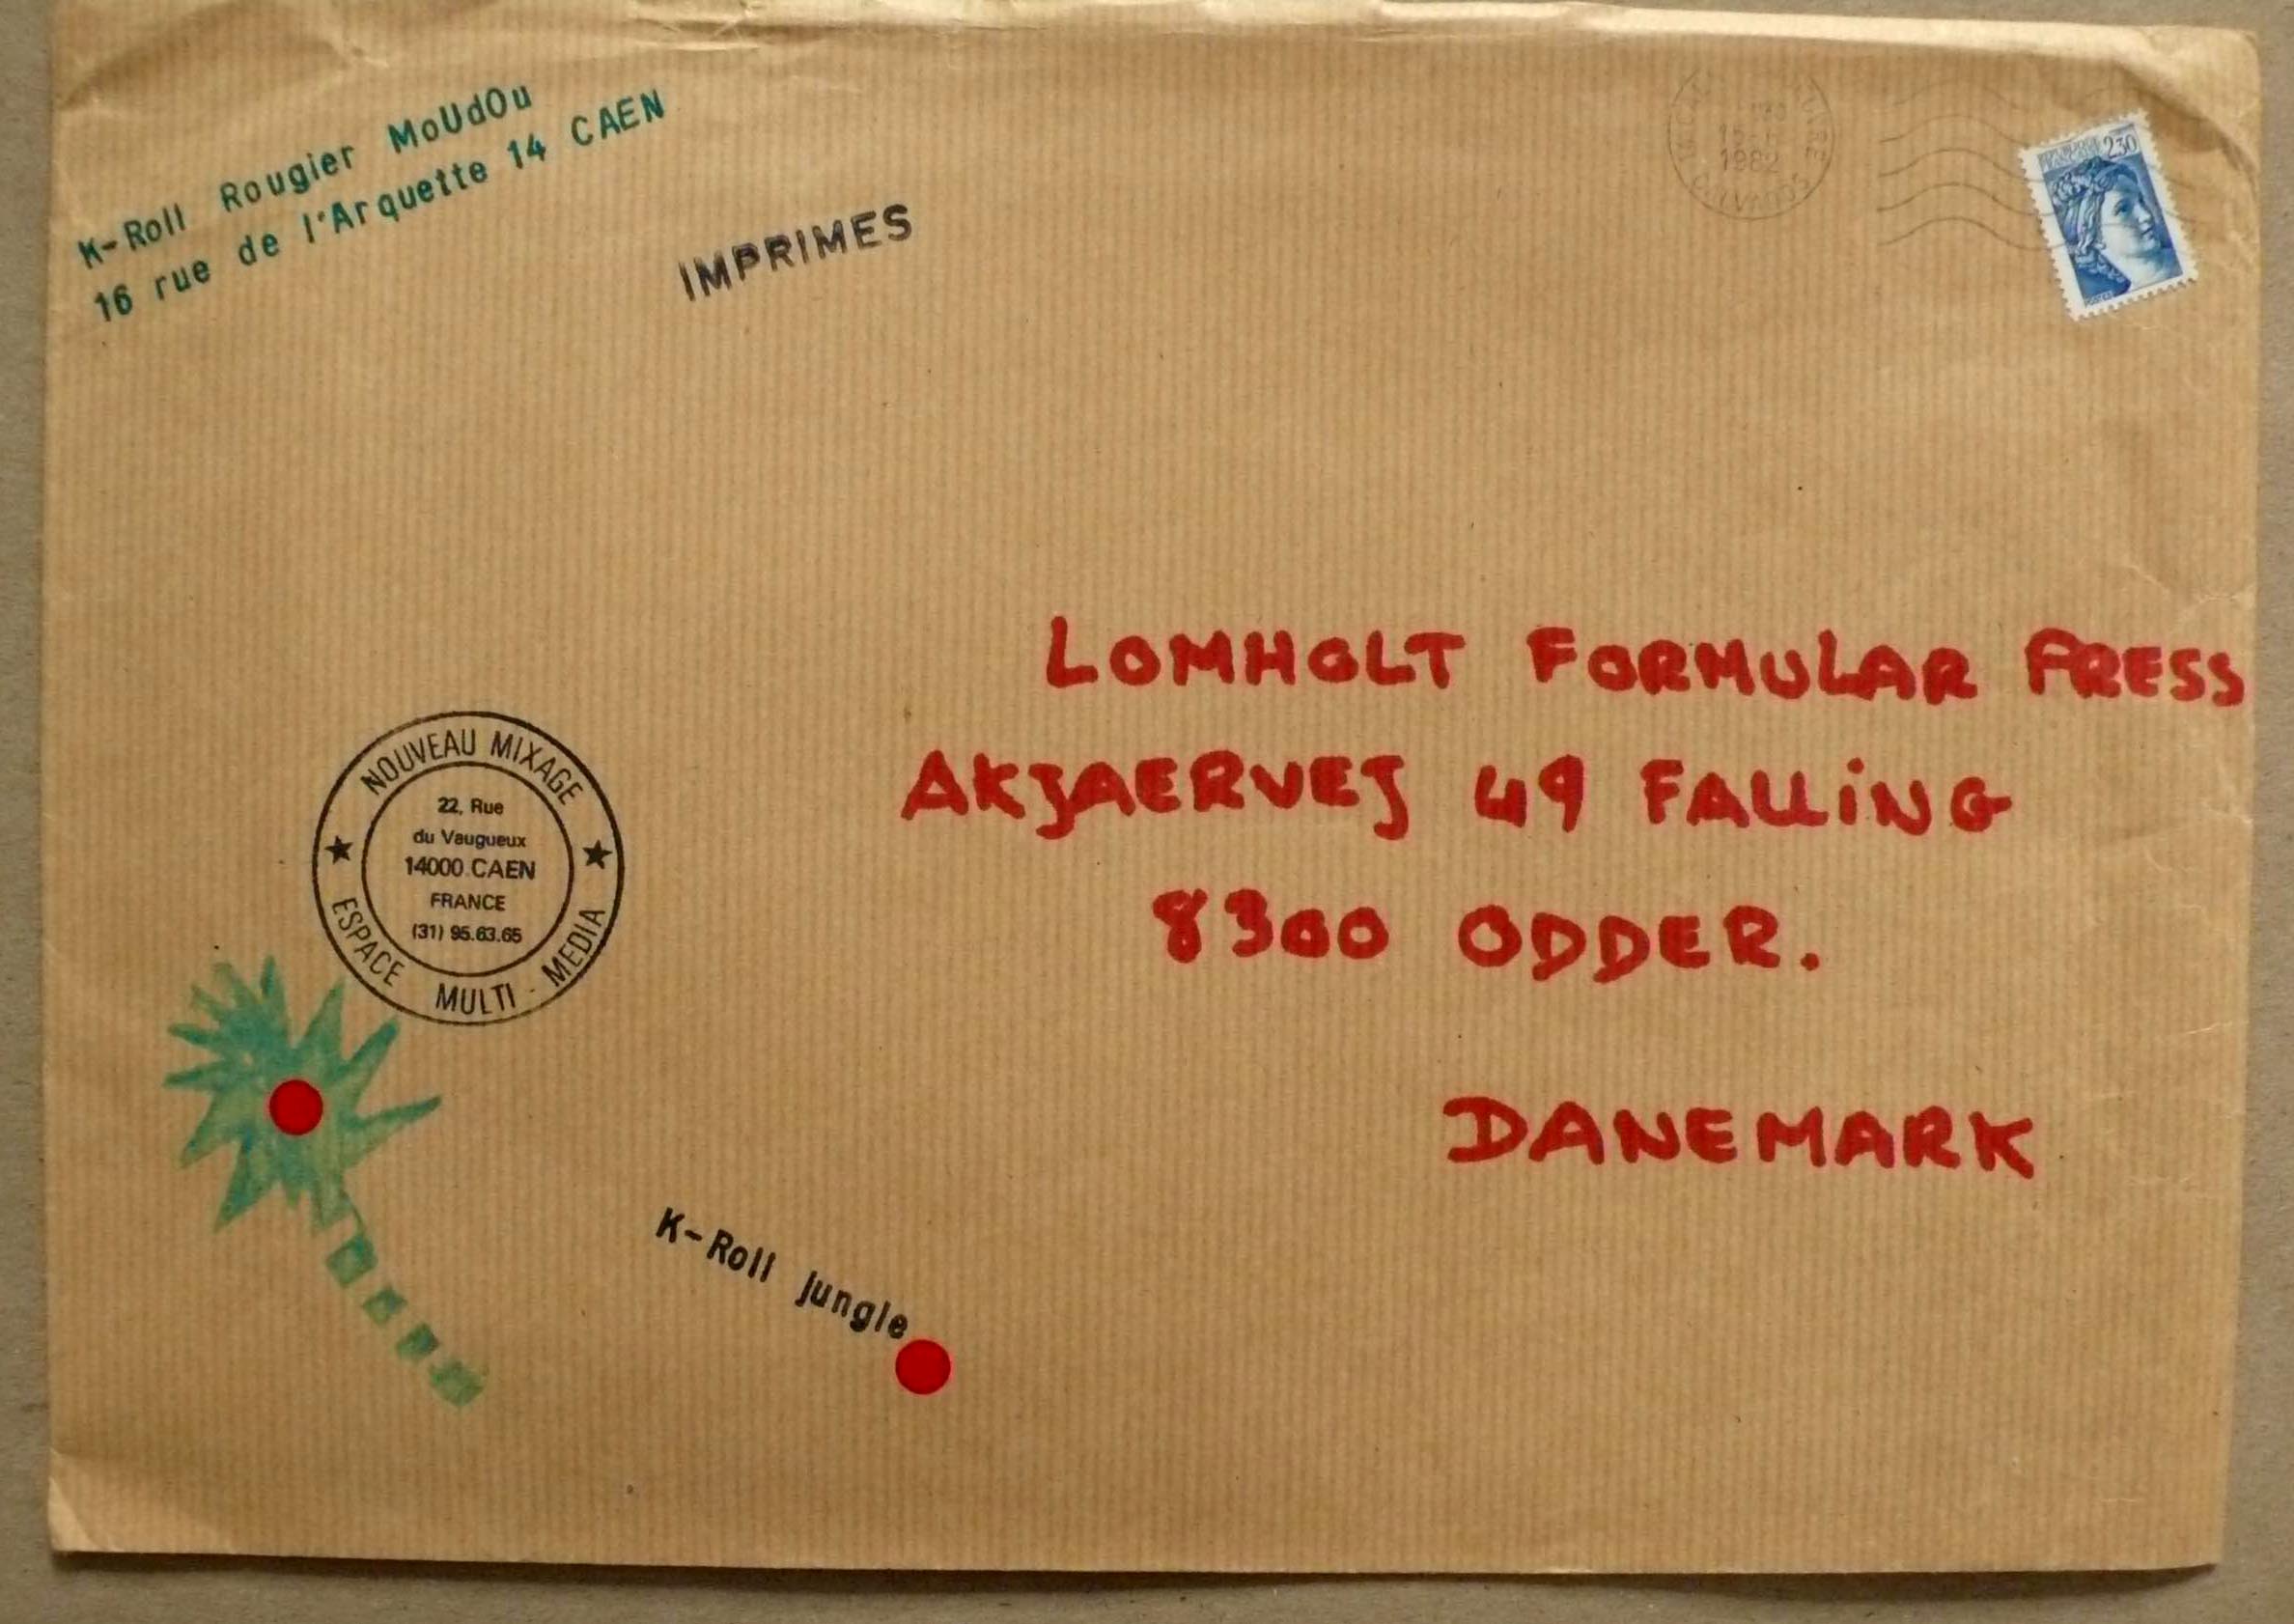 K-Roll Rougier MoUdOu
16 rue de l'Arquette 14 CAEN
IMPRIMES
1982
2,30
LOMHOLT FORMULAR PRESS
AKJAERVEJ 49 FALLiNG
8300 ODDER.
DANEMARK
NOUVEAU MIXAGE
22, Rue
du Vaugueux
14000 CAEN
FRANCE
(31) 95.63.65
ESPACE MULTI - MEDIA
K-Roll jungle